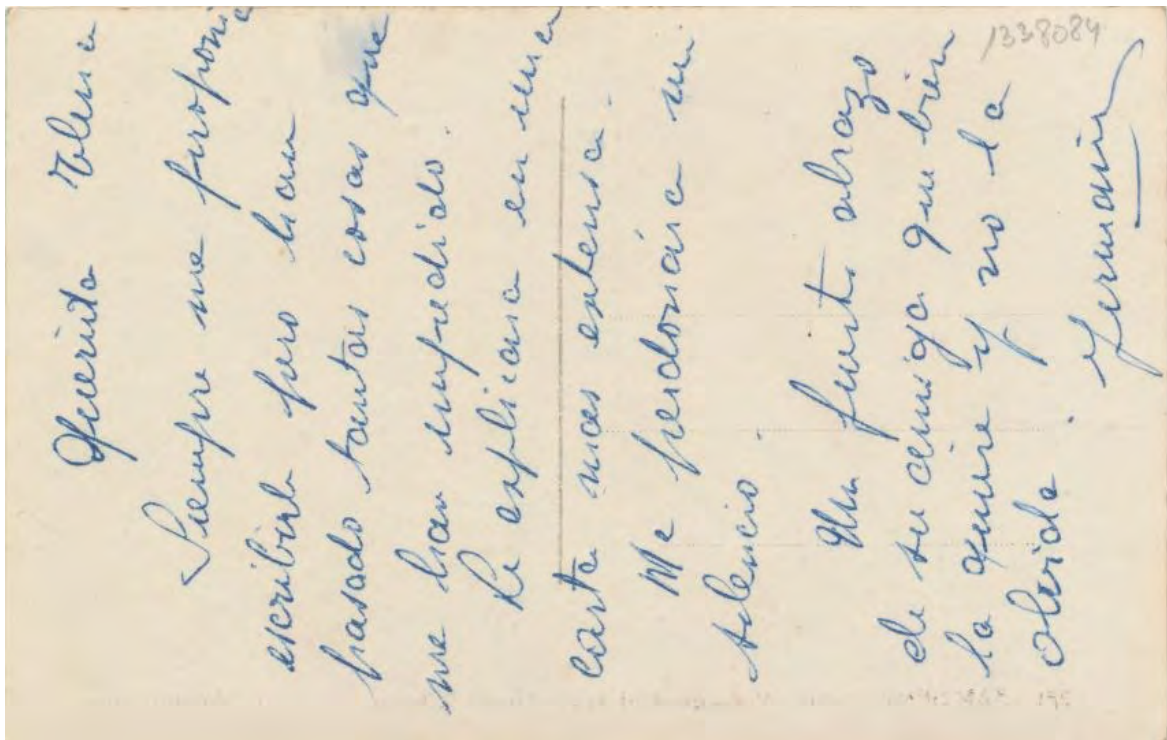 1338084
Querida Elena
Siempre me proponia
escribirle pero han
pasado tantas cosas que
me han impedido.
Le explicare en una
carta mas extensa.
Me perdonara mi
silencio.
Un fuerte abrazo
de su amiga que bien
la quiere y no la
olvida.
Germain